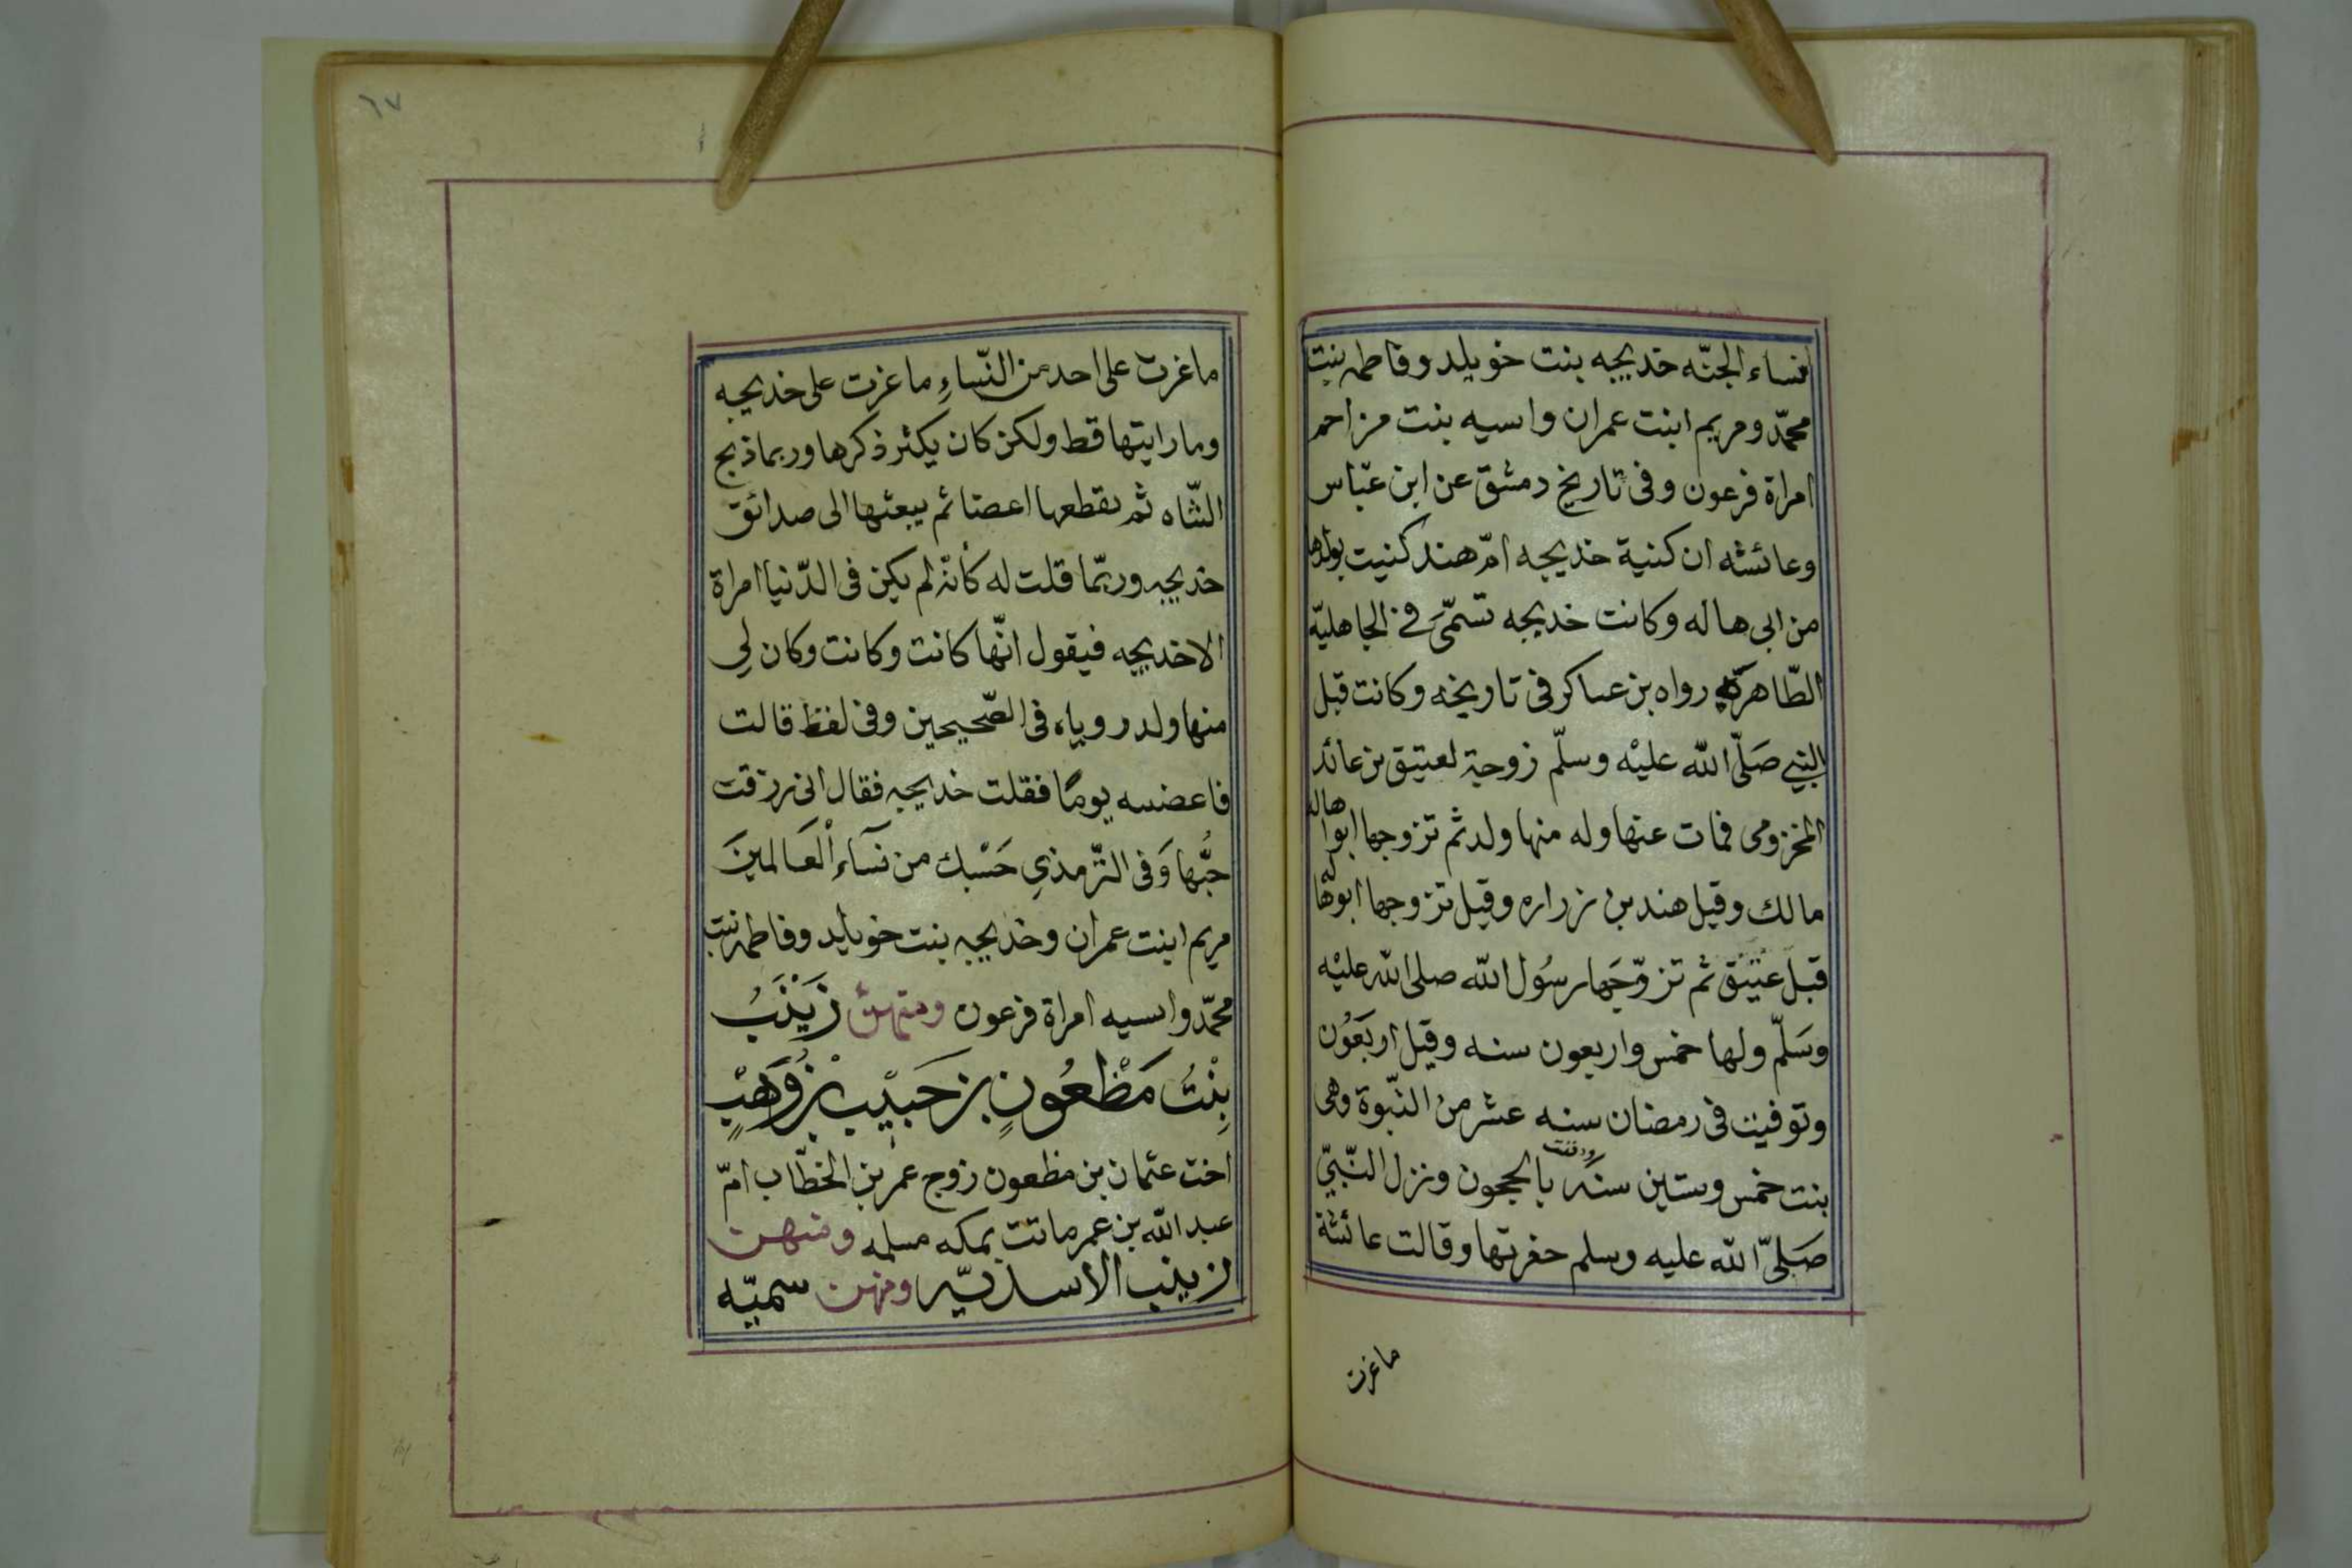 نساء الجنّه خديجه بنت خويلد وفاطمه بنت
محمّد ومريم ابنت عمران واسيه بنت مزاحم
امراة فرعون وفى تاريخ دمشق عن ابن عبّاس
وعائشه ان كنية خديجه امّ هند كنيت بولدها
من ابى هاله وكانت خديجه تسمّى فى الجاهليّة
الطّاهرة رواه بن عساكر فى تاريخه وكانت قبل
النبي صَلّى الله عليْه وسلّم زوجة لعتيق بن عائد
المخزومى فمات عنها وله منها ولد ثم تزوجها ابوا هاله
مالك وقيل هند بن زراره وقيل تزوجها ابوهاله
قبل عتيق ثم تزوّجَها رسُول الله صلى الله عليْه
وسَلّم ولها خمس واربعون سنه وقيل اربَعُون
وتوفيت فى رمضان سنه عشر من النّبوة وهى
بنت خمس وستين سنه ودفنت بالحجون ونزل النّبىّ
صَلىّ الله عليه وسلم حفرتها وقالت عائشة
ماغرت
ماغرت على احد من النّساءِ ماغرت على خديجه
وما رايتها قط ولكن كان يكثر ذكرها وربما ذبح
الشّاه ثم يقطعها اعضا ثم يبعثها الى صدائق
خديجه وربّما قلت له كأنّه لم يكن فى الدّنيا امراة
الا خديجه فيقول انّها كانت وكانت وكان لِى
منها ولد روياه فى الصّحيحين وفى لفظ قالت
فاعضبه يومًا فقلت خديجه فقال انى رزقت
حبُّها وَفى التّرمذي حَسْبك من نسَآء الْعَالمينَ
مريم ابنت عمران وخديجه بنت خويلد وفاطمه بنت
محمّد واسيه امراة فرعون ومنهن زَيْنَبُ
بِنْتُ مَظْعُونٍ بن حَبيْب بْن وَهَبٍ
اخت عثمان بن مظعون زوج عمر بن الخطّاب امّ
عبد الله بن عمر ماتت بمكه مسلمه ومنهن
زينب الاسديّه ومنهن سميّه
٦٧